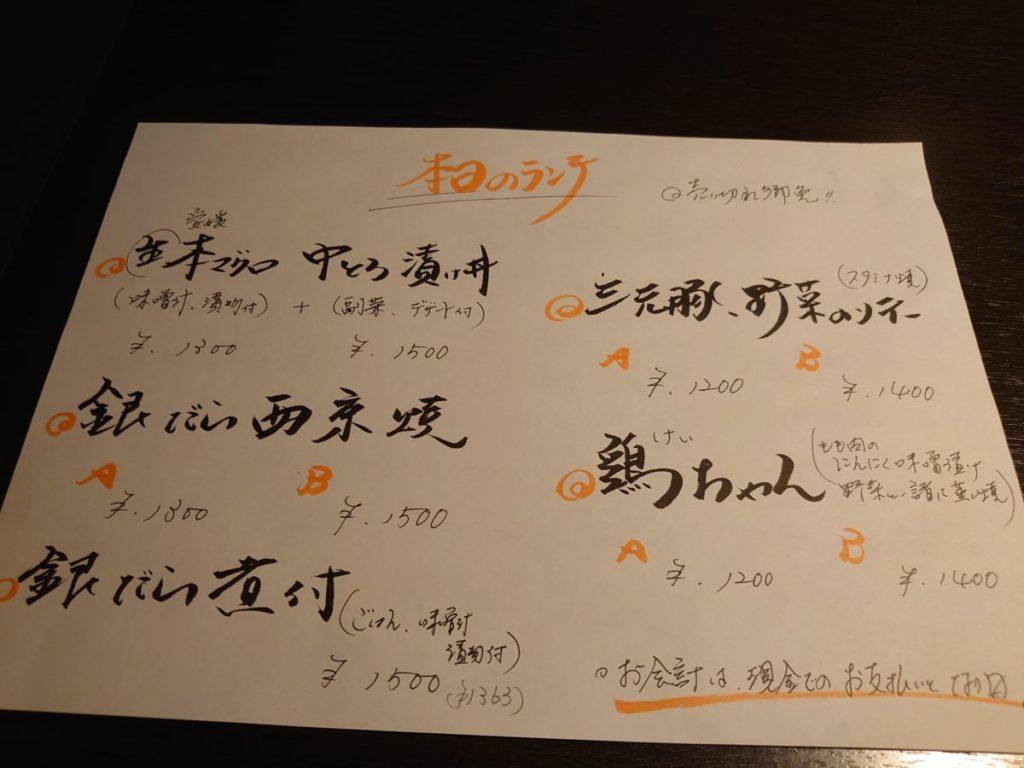 本日のランチ
◎売り切れ御免!!
愛媛
生本マグロ 中とろ漬け丼
(味噌汁、漬物付) + (副菜、デザート付)
¥.1300 ¥.1500
銀だら西京焼
A B
¥.1300 ¥.1500
銀だら煮付
(ごはん、味噌汁
漬物付)
¥1500
(¥1363)
(スタミナ焼)
三元豚、野菜のソテー
A B
¥.1200 ¥.1400
けい
鶏ちゃん
(もも肉の
にんにく味噌漬け
野菜と一諸に蒸し焼)
A B
¥.1200 ¥.1400
○お会計は、現金でのお支払いとなります